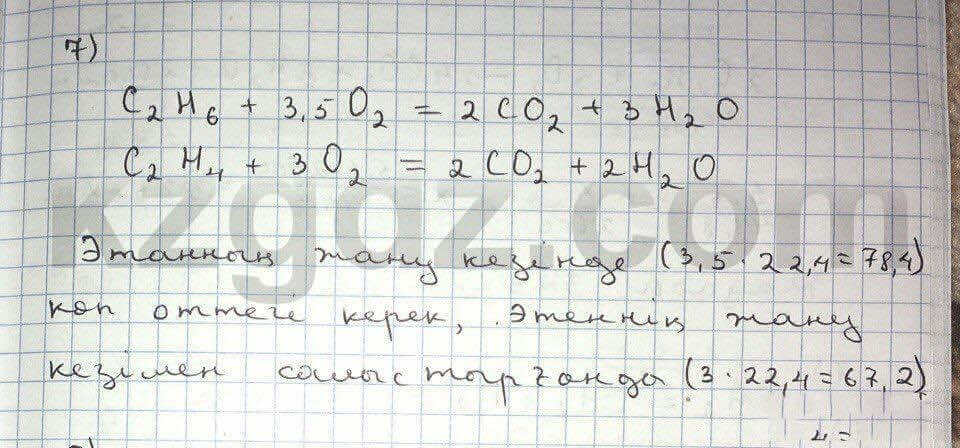 7)
C₂H₆ + 3,5O₂ = 2CO₂ + 3H₂O
C₂H₄ + 3O₂ = 2CO₂ + 2H₂O
kzgdz.com
Этанның жану кезінде (3,5 · 22,4 = 78,4)
көп оттегі керек, этеннің жану
кезімен салыстырғанда (3 · 22,4 = 67,2)